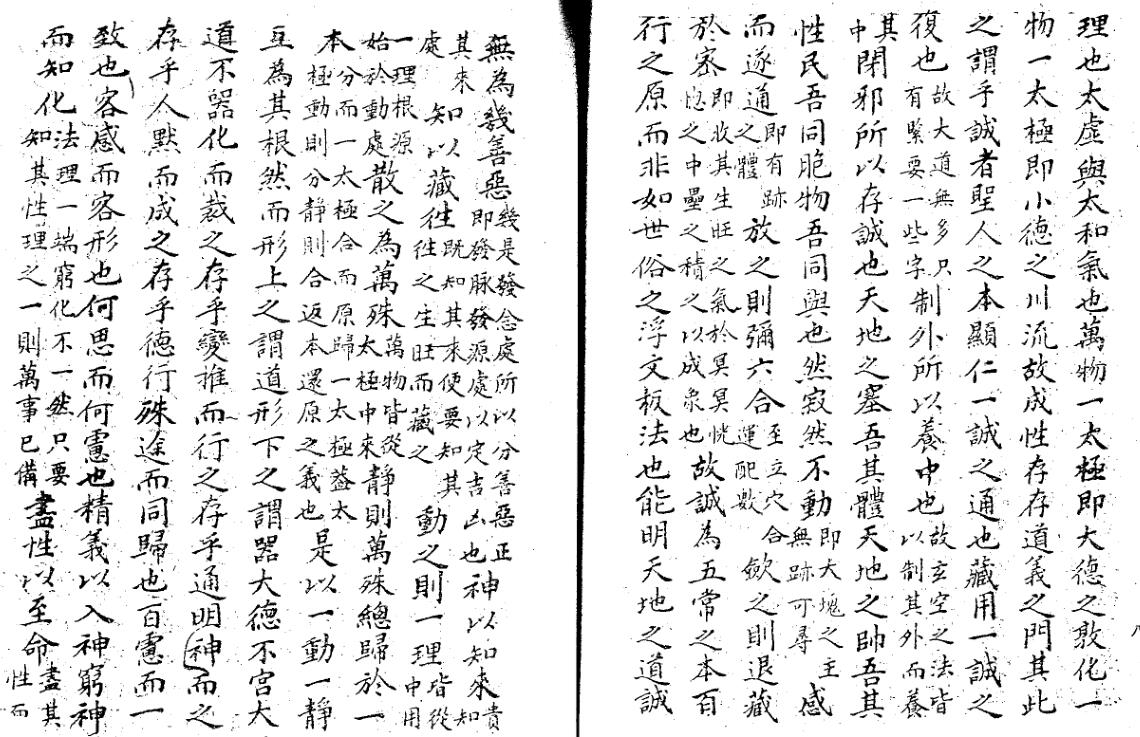 理也太虛與太和氣也萬物一太極即大德之敦化一
物一太極即小德之川流故成性存存道義之門其此
之謂乎誠者聖人之本顯仁一誠之通也藏用一誠之
復也故大道無多只有緊要一些字制外所以養中也故玄空之法皆以制其外而養
其中閉邪所以存誠也天地之塞吾其體天地之帥吾其
性民吾同胞物吾同與也然寂然不動即大塊之主無跡可尋感
而遂通即有跡之體放之則彌六合至立穴合運配數歛之則退藏
於密即收其生旺之氣於冥冥恍惚之中壘之積之以成象也故誠為五常之本百
行之原而非如世俗之浮文板法也能明天地之道誠
無為幾善惡幾是發念處所以分善惡正即發脉發源處以定吉凶也神以知來貴知
其來處知以藏往既知其來便要知其往之生旺而藏之動之則一理皆從中用
一理根源始於動處散之為萬殊萬物皆從太極中來靜則萬殊總歸於一
本分而一太極合而原歸一太極蓋太極動則分靜則合返本還原之義也是以一動一靜
互為其根然而形上之謂道形下之謂器大德不官大
道不器化而裁之存乎變推而行之存乎通明神而之
存乎人默而成之存乎德行殊途而同歸也百慮而一
致也客感而客形也何思而何慮也精義以入神窮神
而知化法理一端窮化不一然只要知其性理之一則萬事已備盡性以至命盡其性而